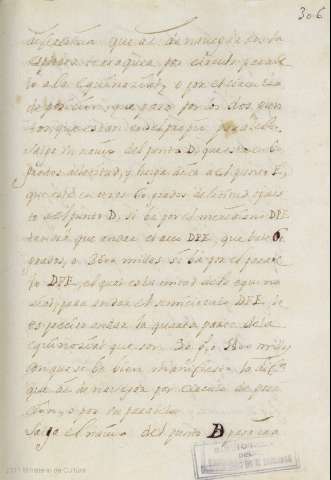 306
diferencia que ai de navegar por la
esphera terraquea por circulo parale
lo a la Equinoxial, o por el circulo
de posicion, que pasa por los dos pun
tos que estan en el proprio paralelo
salga un navio del punto D, que esta en 60
grados de latitud, y haga viaje al punto E,
que esta en otros 60 grados de latitud opues
to al punto D, si ba por el meridiano DPE
tendra que andar el arco DPE, que bale 60
grados, o 3600 millas si ba por el parale
lo DFE, el qual es la mitad de la equino
xial, para andar el semicirculo DFE, se
es preciso andar la quarta parte de la
Equinoxial que son 90 g.s o 5400 millas
con que se be bien manifiesta la difª.
que ai de navegar por circulo de posi
cion, y o por su paralelo
Salga el navio del punto B
2011 Ministerio de Cultura